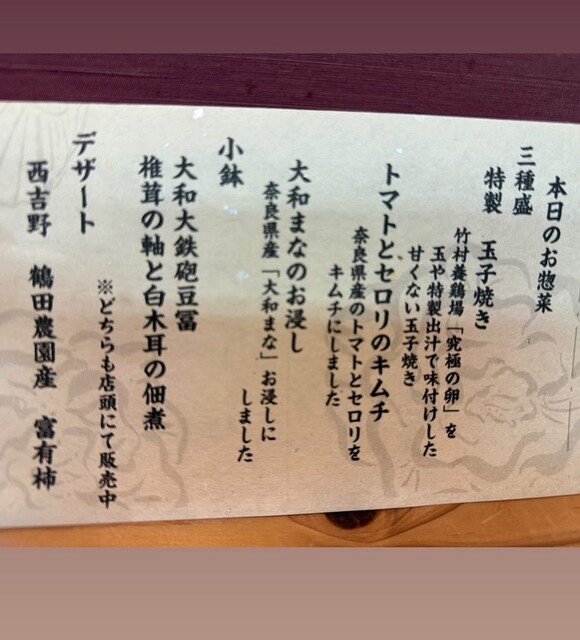 本日のお惣菜
三種盛
特製　玉子焼き
竹村養鶏場「究極の卵」を
玉や特製出汁で味付けした
甘くない玉子焼き
トマトとセロリのキムチ
奈良県産のトマトとセロリを
キムチにしました
大和まなのお浸し
奈良県産「大和まな」お浸しに
しました
小鉢
大和大鉄砲豆冨
椎茸の軸と白木耳の佃煮
※どちらも店頭にて販売中
デザート
西吉野　鶴田農園産　富有柿